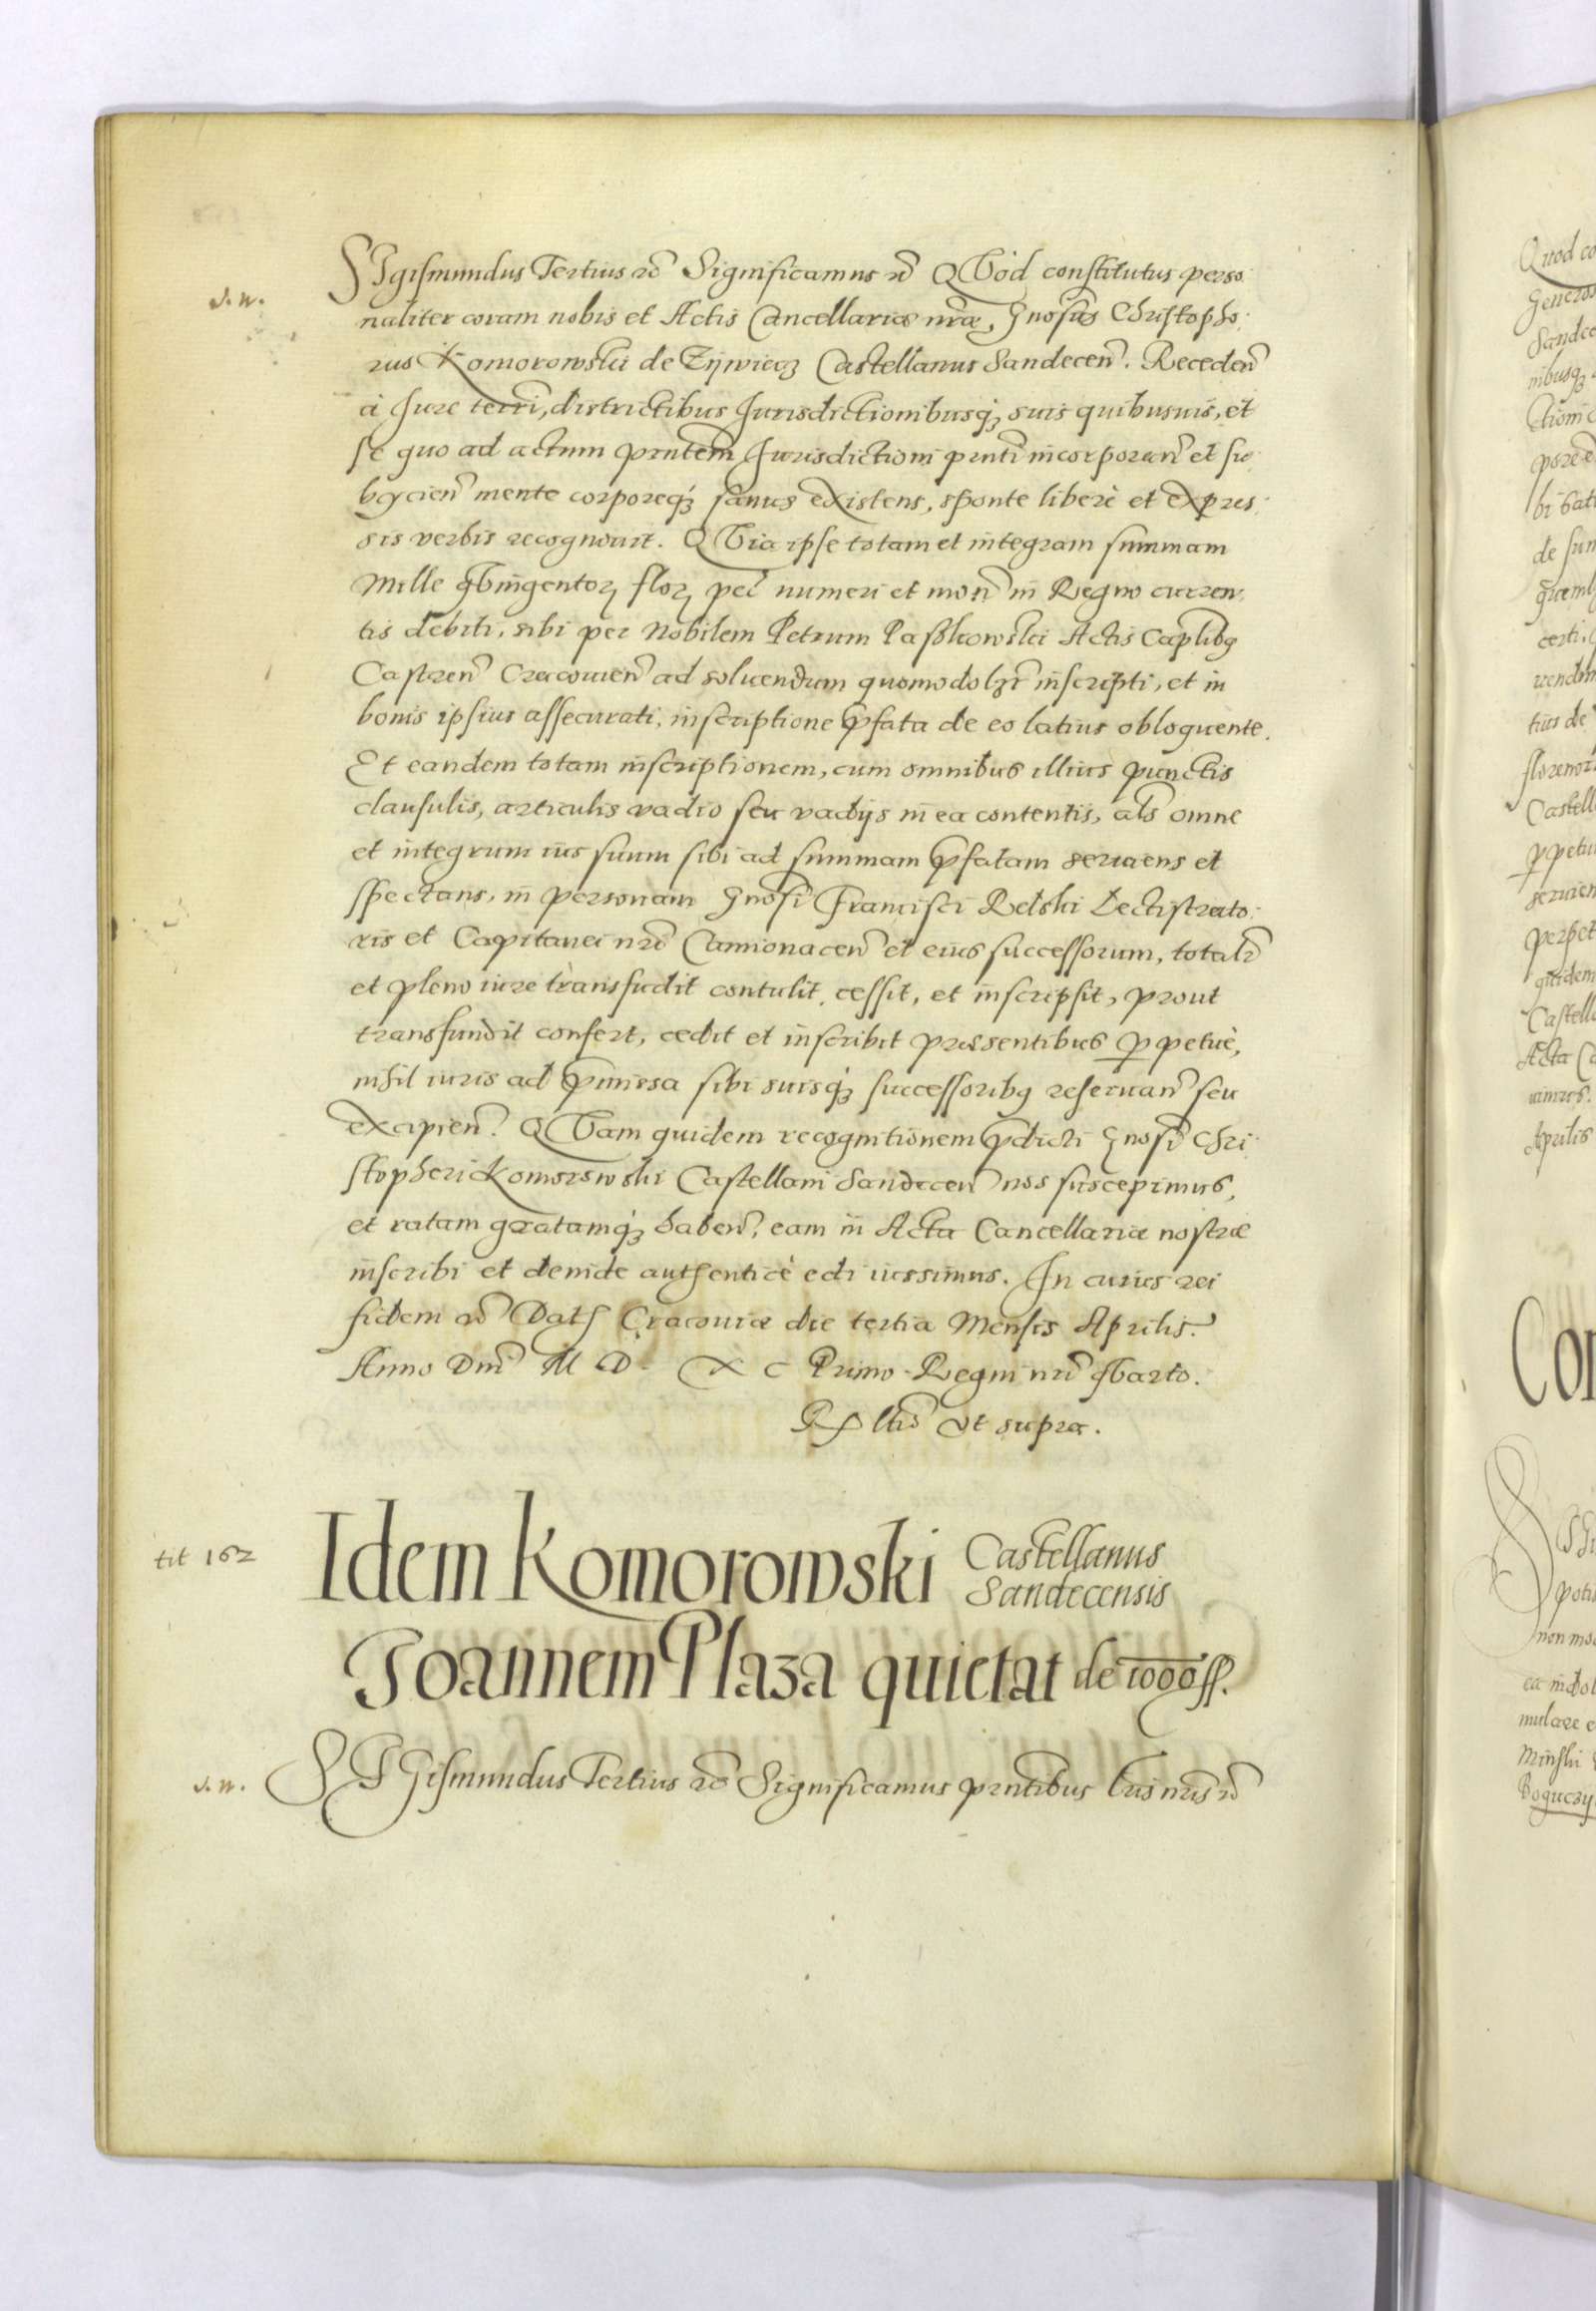 SIgismundus Tertius etc Significamus etc QVod constitutus perso:
s. n.
naliter coram nobis et Actis Cancellariae nrae, Gnosus Christopho:
rus Komorowski de Zijwiecz Castellanus Sandecen. Receden
à Jure terri, districtibus Jurisdictionibusq3 suis quibusuis, et
se quo ad actum pntem Jurisdictioni pnti incorporan et su:
bycien mente corporeq3 sanus existens, sponte liberè et expres:
sis verbis recognouit. QVia ipse totam et integram summam
Mille qVingentor flor pec numeri et mon in Regno curren:
tis debiti, sibi per Nobilem Petrum Paszkowski Actis Caplibq
Castren Cracouien ad soluendum quomodolzt inscripti, et in
bonis ipsius assecurati, inscriptione pfata de eo latius obloquente.
Et eandem totam inscriptionem, cum omnibus illius punctis
clausulis, articulis vadio seu vadijs in ea contentis, als omne
et integrum ius suum sibi ad summam pfatam seruiens et
spectans, in personam Gnosi Francisci Relski Lectistrato:
ris et Capitanei nri Camionacen et eius successorum, totali
et pleno iure transfudit contulit, cessit, et inscripsit, prout
transfundit confert, cedit et inscribit praesentibus ppetuè,
nihil iuris ad pmissa sibi suisq3 successoribq reseruan seu
excipien. QVam quidem recognitionem pdicti Gnosi Chri:
stopheri Komorowski Castellani Sandecen nos suscepimus,
et ratam gratamq3 haben, eam in Acta Cancellariae nostrae
inscribi et deinde authenticè edi iussimus. In cuius rei
fidem etc Dat Cracouiae die tertia Mensis Aprilis.
Anno Dni M D. X C Primo Regni nri qVarto.
Rltio vt supra.
tit 162
Idem Komorowski Castellanus
Sandecensis
Joannem Plaza quietat de 1000 ff.
s. n.
SIGismundus Tertius etc Significamus pntibus lris nris etc